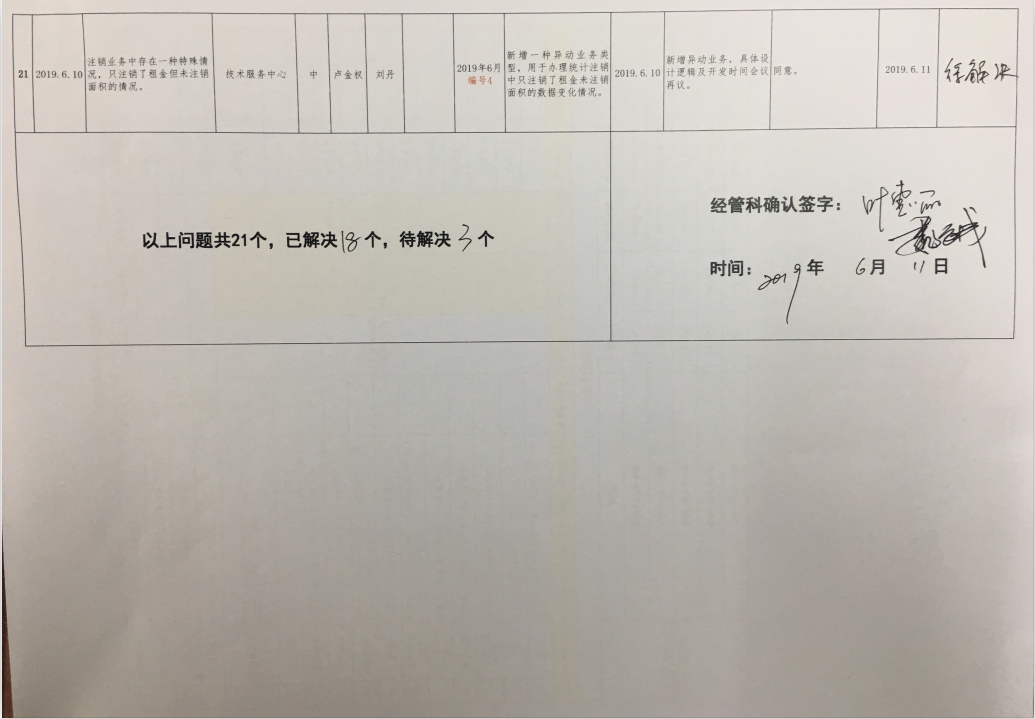 21
2019.6.10
注销业务中存在一种特殊情
况，只注销了租金但未注销
面积的情况。
技术服务中心
中
卢金权
刘丹
2019年6月
编号4
新增一种异动业务类
型，用于办理统计注销
中只注销了租金未注销
面积的数据变化情况。
2019.6.10
新增异动业务，具体设
计逻辑及开发时间会议
再议。
同意。
2019.6.11
解决
以上问题共21个，已解决18个，待解决3个
经管科确认签字：
时间：2019年 6月 11日